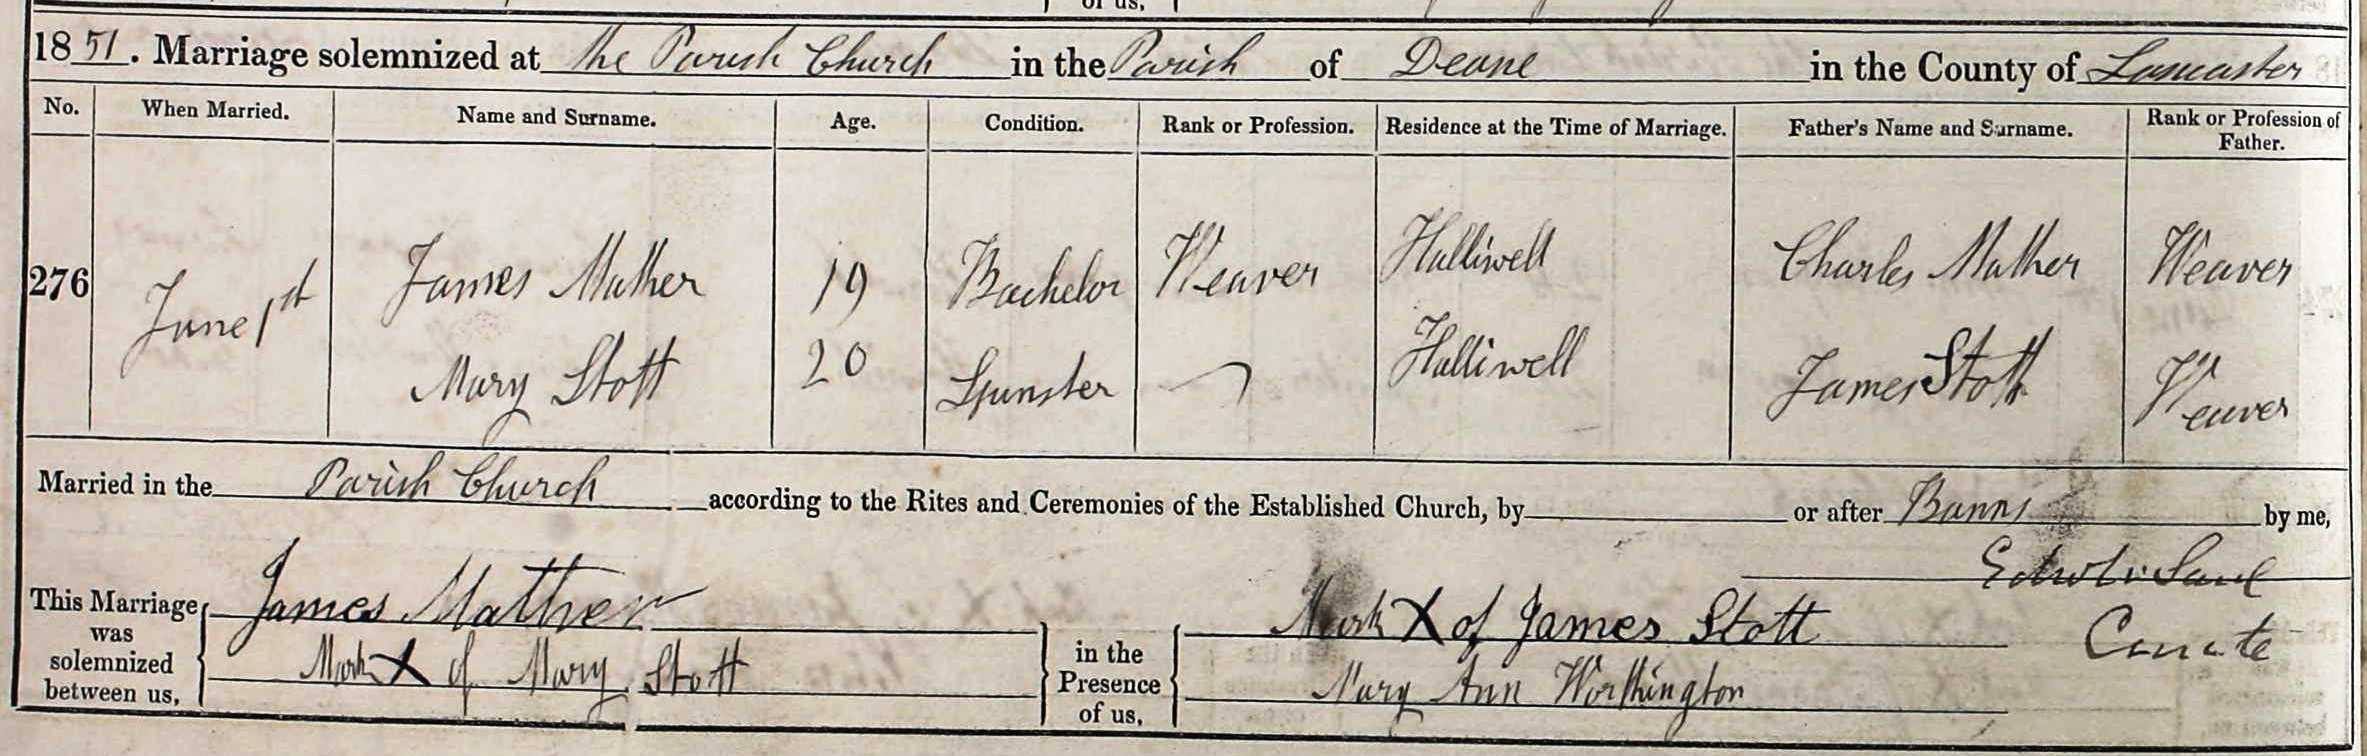 of us,
1851. Marriage solemnized at the Parish Church in the Parish of Deane in the County of Lancaster
No. When Married. Name and Surname. Age. Condition. Rank or Profession. Residence at the Time of Marriage. Father's Name and Surname. Rank or Profession of Father.
276 June 1st James Mather 19 Bachelor Weaver Halliwell Charles Mather Weaver
Mary Stott 20 Spinster Halliwell James Stott Weaver
Married in the Parish Church according to the Rites and Ceremonies of the Established Church, by or after Banns by me,
This Marriage was solemnized between us,
James Mather
Mark X of Mary Stott
in the Presence of us,
Mark X of James Stott
Mary Ann Worthington
Curate